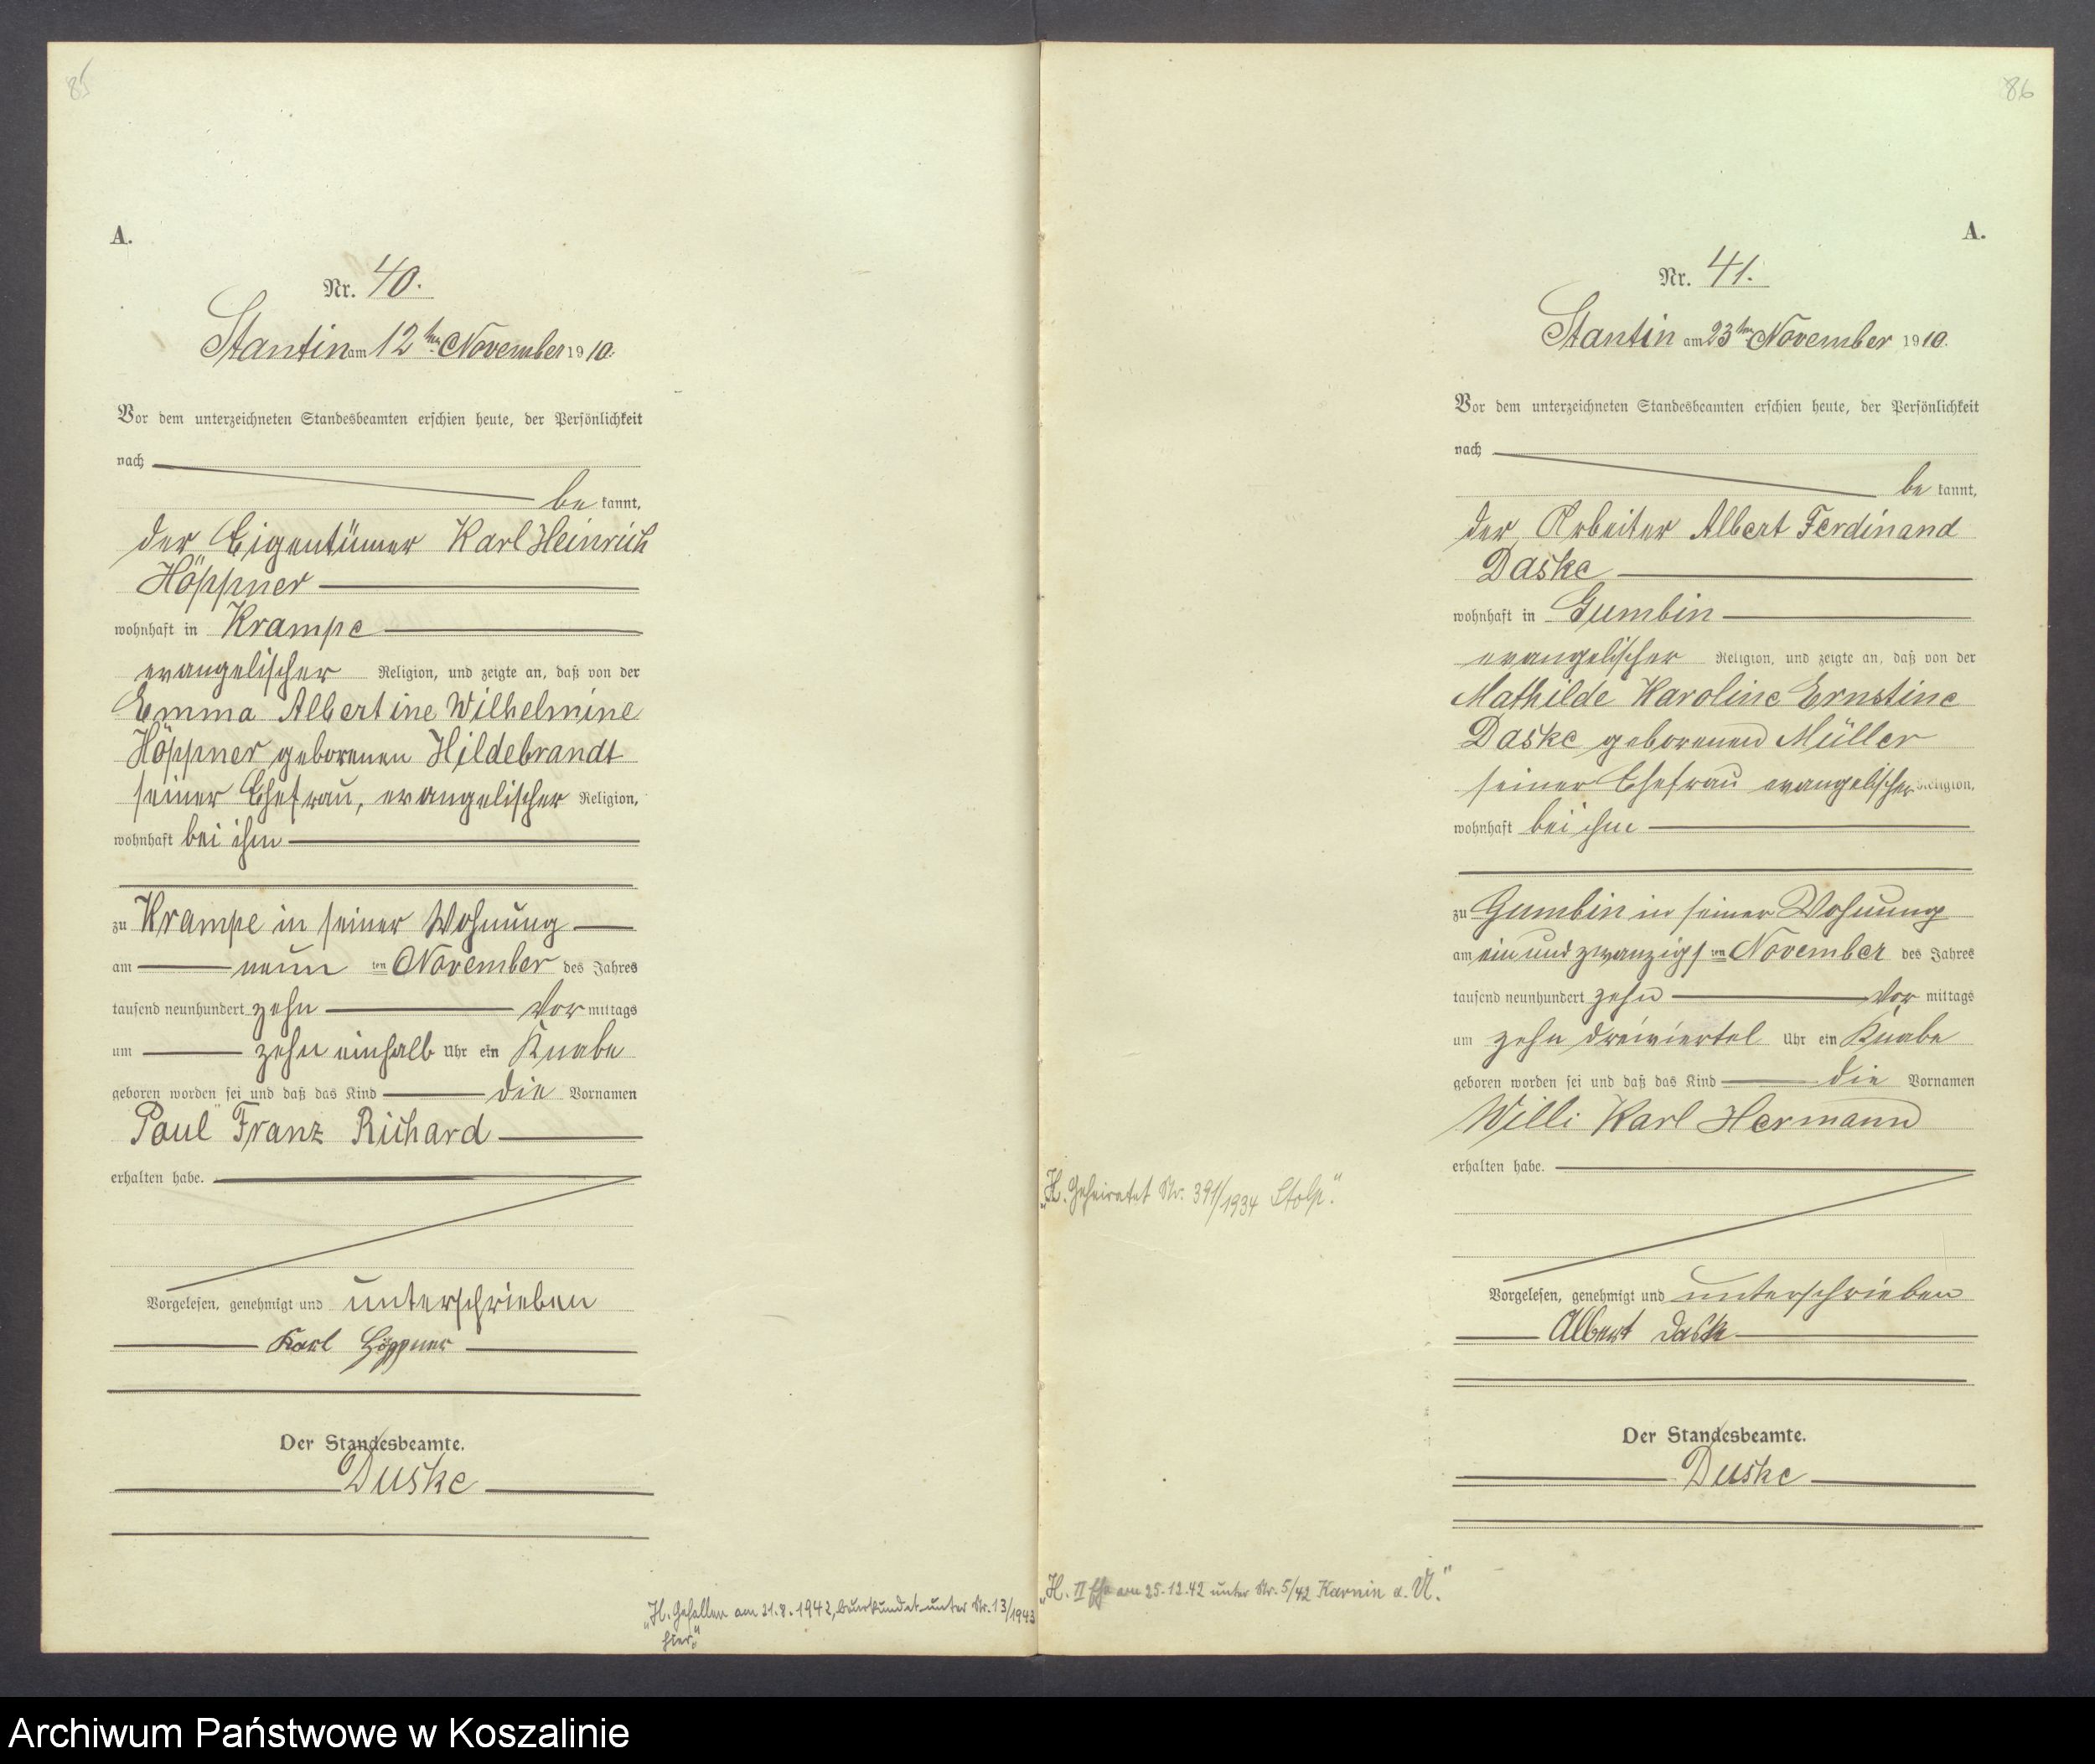 85
A.
Nr. 40.
Stantin am 12ten November 1910.
Vor dem unterzeichneten Standesbeamten erschien heute, der Persönlichkeit
nach
be kannt,
der Eigentümer Karl Heinrich
Höppner
wohnhaft in Krampe
evangelischer Religion, und zeigte an, daß von der
Emma Albertine Wilhelmine
Höppner geborenen Hildebrandt
seiner Ehefrau, evangelischer Religion,
wohnhaft bei ihm
zu Krampe in seiner Wohnung
am neun ten November des Jahres
tausend neunhundert zehn Vor mittags
um zehn einhalb Uhr ein Knabe
geboren worden sei und daß das Kind die Vornamen
Paul Franz Richard
erhalten habe.
Vorgelesen, genehmigt und unterschrieben
Karl Höppner
Der Standesbeamte.
Duske
„H. Gefallen am 21.8.1942, beurkundet unter Nr. 13/1943
hier."
86
A.
Nr. 41.
Stantin am 23ten November 1910.
Vor dem unterzeichneten Standesbeamten erschien heute, der Persönlichkeit
nach
be kannt,
der Arbeiter Albert Ferdinand
Daske
wohnhaft in Gumbin
evangelischer Religion, und zeigte an, daß von der
Mathilde Karoline Ernstine
Daske geborenen Müller
seiner Ehefrau evangelischer Religion,
wohnhaft bei ihm
zu Gumbin in seiner Wohnung
am ein und zwanzigs ten November des Jahres
tausend neunhundert zehn Vor mittags
um zehn dreiviertel Uhr ein Knabe
geboren worden sei und daß das Kind die Vornamen
Willi Karl Hermann
erhalten habe.
„H. Geheiratet Nr. 391/1934 Stolp."
Vorgelesen, genehmigt und unterschrieben
Albert Daske
Der Standesbeamte.
Duske
„H. II Ehe am 25.12.42 unter Nr. 5/42 Karnin a.
Archiwum Państwowe w Koszalinie